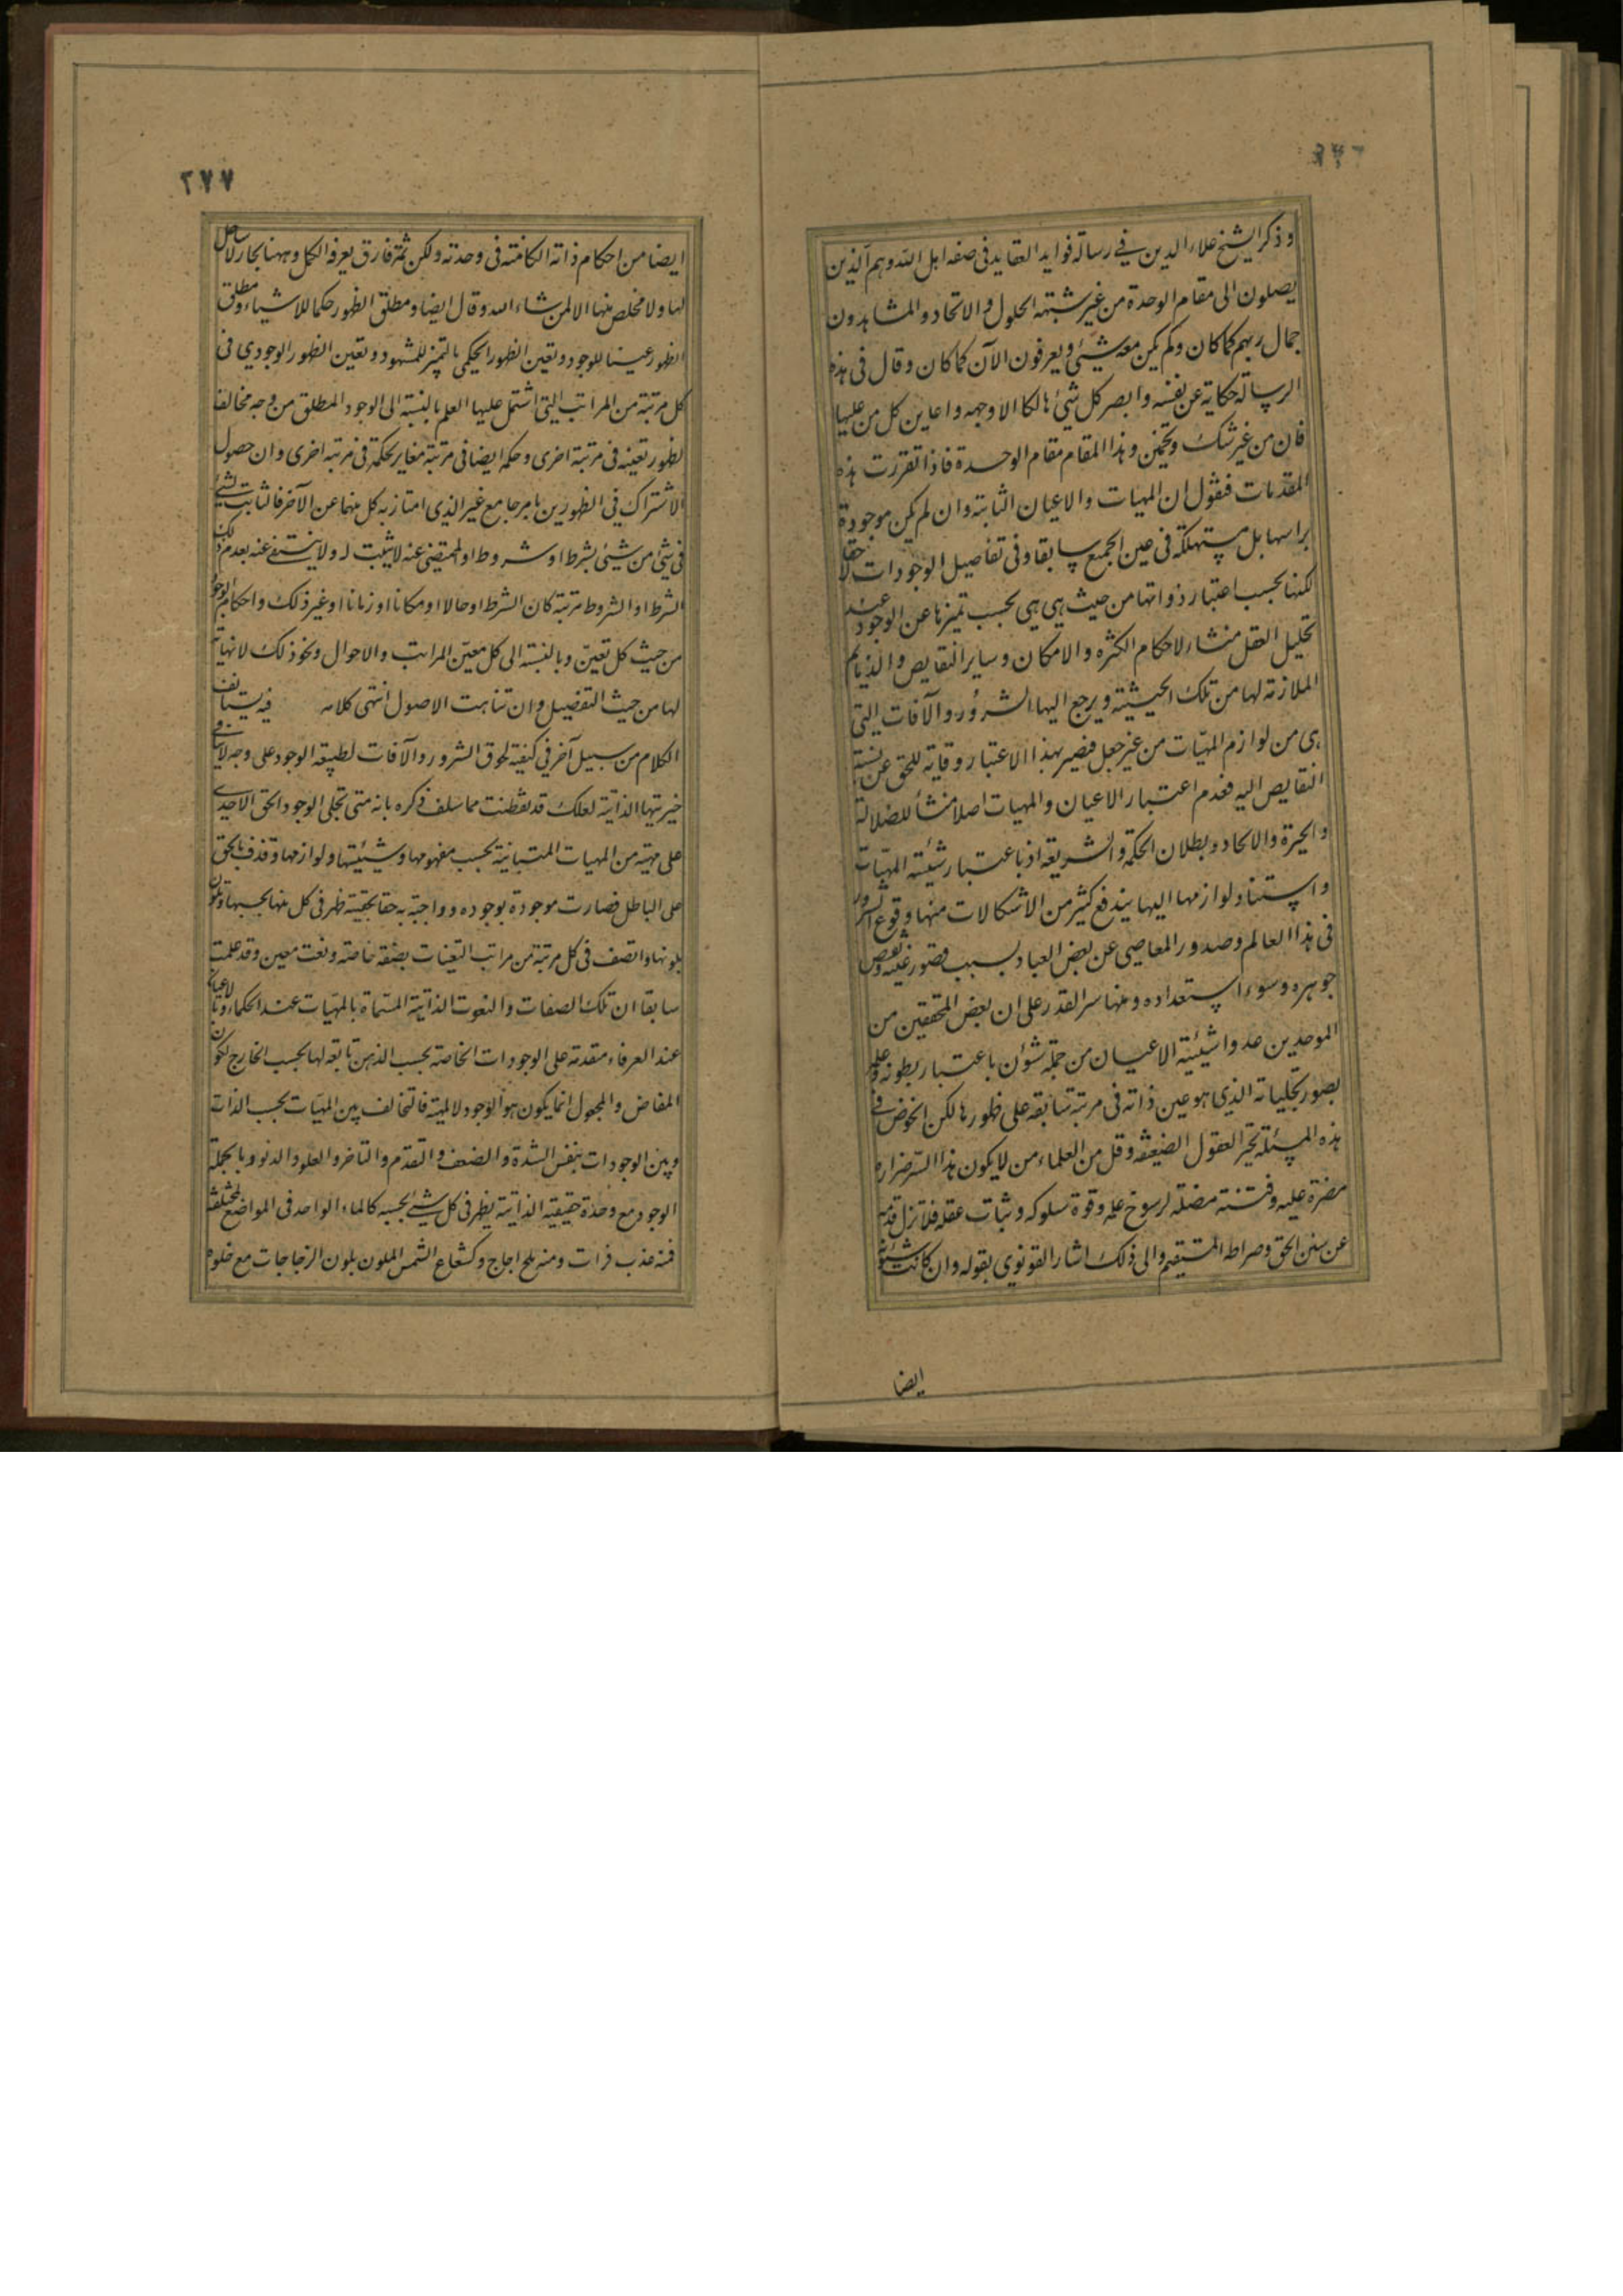 وذكر الشيخ علاء الدين في رسالة فوايد العقايد فى صفه اهل الله وهم الذين
يصلون الى مقام الوحدة من غير شبهة الحلول والاتحاد والمشاهدون
جمال ربهم كما كان ولم يكن معه شيئ ويعرفون الآن كما كان وقال فى هذه
الرسالة حكاية عن نفسه وابصر كل شيئ هالكا الا وجهه واعاين كل من عليها
فان من غير شك وتخمين وهذا المقام مقام الوحدة فاذا تقررت هذه
المقدمات فنقول ان المهيات والاعيان الثابتة وان لم تكن موجودة
براسها بل مستهلكة فى عين الجمع سابقا وفى تفاصيل الوجودات لاحقا
لكنها بحسب اعتبار ذواتها من حيث هى هى بحسب تميزها عن الوجود عند
تحليل العقل منشاء لاحكام الكثره والامكان وساير النقايص والذمايم
الملازمة لها من تلك الحيثية ويرجع اليها الشرور والآفات التي
هى من لوازم المهيات من غير جعل فتصير بهذا الاعتبار وقاية للحق عن نسبة
النقايص اليه فعدم اعتبار الاعيان والمهيات اصلا منشأ للضلالة
والحيرة والالحاد وبطلان الحكمة والشريعة اذ باعتبار شيئية المهيات
واستناد لوازمها اليها يندفع كثير من الاشكالات منها وقوع الشرور
فى هذا العالم وصدور المعاصى عن بعض العباد بسبب قصور عينه ونقص
جوهره وسوء استعداده ومنها سر القدر على ان بعض المحققين من
الموحدين عدوا شيئية الاعيان من جملة شؤن باعتبار بطونه وعلمه
بصور تجلياته الذي هو عين ذاته فى مرتبة سابقة على ظهورها لكن الخوض في
هذه المسئلة تحير العقول الضعيفه وقل من العلماء من لا يكون هذا السر ضراره
مضرة عليه وفتنة مضلة لرسوخ علمه وقوة سلوكه وثبات عقله فلا تزل قدمه
عن سنن الحق وصراطه المستقيم والى ذلك اشار القونوي بقوله وان كانت شئونه
ايضا
٢٧٧
ايضا من احكام ذاته الكامنة فى وحدته ولكن ثمة فارق يعرفه الكمل وههنا بحار لا ساحل
لها ولا مخلص منها الا لمن شاء الله وقال ايضا ومطلق الظهور حكما للاشياء ومطلق
الظهور عينا للوجود وتعين الظهور الحكمى بالتميز للمشهود وتعين الظهور الوجودي فى
كل مرتبة من المراتب التى اشتمل عليها العلم بالنسبة الى الوجود المطلق من وجه مخالف
لظهور تعينه فى مرتبة اخرى وحكمه ايضا فى مرتبة مغاير لحكمه فى مرتبة اخرى وان حصول
الاشتراك في الظهورين بامر جامع غير الذى امتاز به كل منهما عن الآخر فالثابت لشئ
فى شئ من شيئ بشرط او شروط او المنتفى عنه لا يثبت له ولا ينتفى عنه بعدم ذلك
الشرط او الشروط مرتبة كان الشرط او حالا او مكانا او زمانا او غير ذلك واحكام الوجود
من حيث كل تعين وبالنسبة الى كل معين المراتب والاحوال ونحو ذلك لا نهاية
لها من حيث التفضيل وان تناهت الاصول انتهى كلامه فيه يستانف
الكلام من سبيل آخر في كيفية لحوق الشرور والآفات لطبيعة الوجود على وجه لا ينافى
خيريتها الذاتية لعلك قد تفطنت مما سلف ذكره بانه متى تجلى الوجود الحق الاحدى
على مهية من المهيات المتباينة بحسب مفهومها وشيئيتها ولوازمها وقذف بالحق
على الباطل فصارت موجودة بوجوده وواجبة به حقا بحقيته ظهر فى كل منها بحسبها وتلون
بلونها واتصف فى كل مرتبة من مراتب التعينات بصفة خاصة ونعت معين وقد علمت
سابقا ان تلك الصفات والنعوت الذاتية المسماة بالمهيات عند الحكماء وبالاعيان
عند العرفاء متقدمة على الوجودات الخاصة بحسب الذهن تابعة لها بحسب الخارج لكون
المفاض والمجعول انما يكون هو الوجود لا المهية فالتخالف بين المهيات بحسب الذات
وبين الوجودات بنفس الشدة والضعف والتقدم والتاخر والعلو والدنو وبالجملة
الوجود مع وحدة حقيقيه الذاتية يظهر فى كل شيئ بحسبه كالماء الواحد فى المواضع المختلفة
فمنه عذب فرات ومنه ملح اجاج وكشعاع الشمس الملون بلون الزجاجات مع خلوه